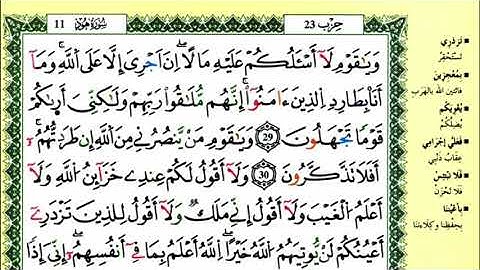 سُورَةُ هُود 11
حِزْب 23
وَيَٰقَوْمِ لَآ أَسْـَٔلُكُمْ عَلَيْهِ مَالًا إِنْ أَجْرِىَ إِلَّا عَلَى ٱللَّهِ وَمَآ
أَنَا۠ بِطَارِدِ ٱلَّذِينَ ءَامَنُوٓا۟ إِنَّهُم مُّلَٰقُوا۟ رَبِّهِمْ وَلَٰكِنِّىٓ أَرَىٰكُمْ
قَوْمًا تَجْهَلُونَ 29 وَيَٰقَوْمِ مَن يَنصُرُنِى مِنَ ٱللَّهِ إِن طَرَدتُّهُمْ
أَفَلَا تَذَّكَّرُونَ 30 وَلَآ أَقُولُ لَكُمْ عِندِى خَزَآئِنُ ٱللَّهِ وَلَآ
أَعْلَمُ ٱلْغَيْبَ وَلَآ أَقُولُ إِنِّى مَلَكٌ وَلَآ أَقُولُ لِلَّذِينَ تَزْدَرِىٓ
أَعْيُنُكُمْ لَن يُؤْتِيَهُمُ ٱللَّهُ خَيْرًا ٱللَّهُ أَعْلَمُ بِمَا فِىٓ أَنفُسِهِمْ إِنِّىٓ إِذًا
تَزْدَرِي
تَسْتَحْقِرُ
بِمُعْجِزِينَ
فَائِتِينَ اللهَ بِالهَرَبِ
يُغْوِيَكُمْ
يُضِلَّكُمْ
فَعَلَيَّ إِجْرَامِي
عِقَابُ ذَنْبِي
فَلَا تَبْتَئِسْ
فَلَا تَحْزَنْ
بِأَعْيُنِنَا
بِحِفْظِنَا وَكِلَاءَتِنَا